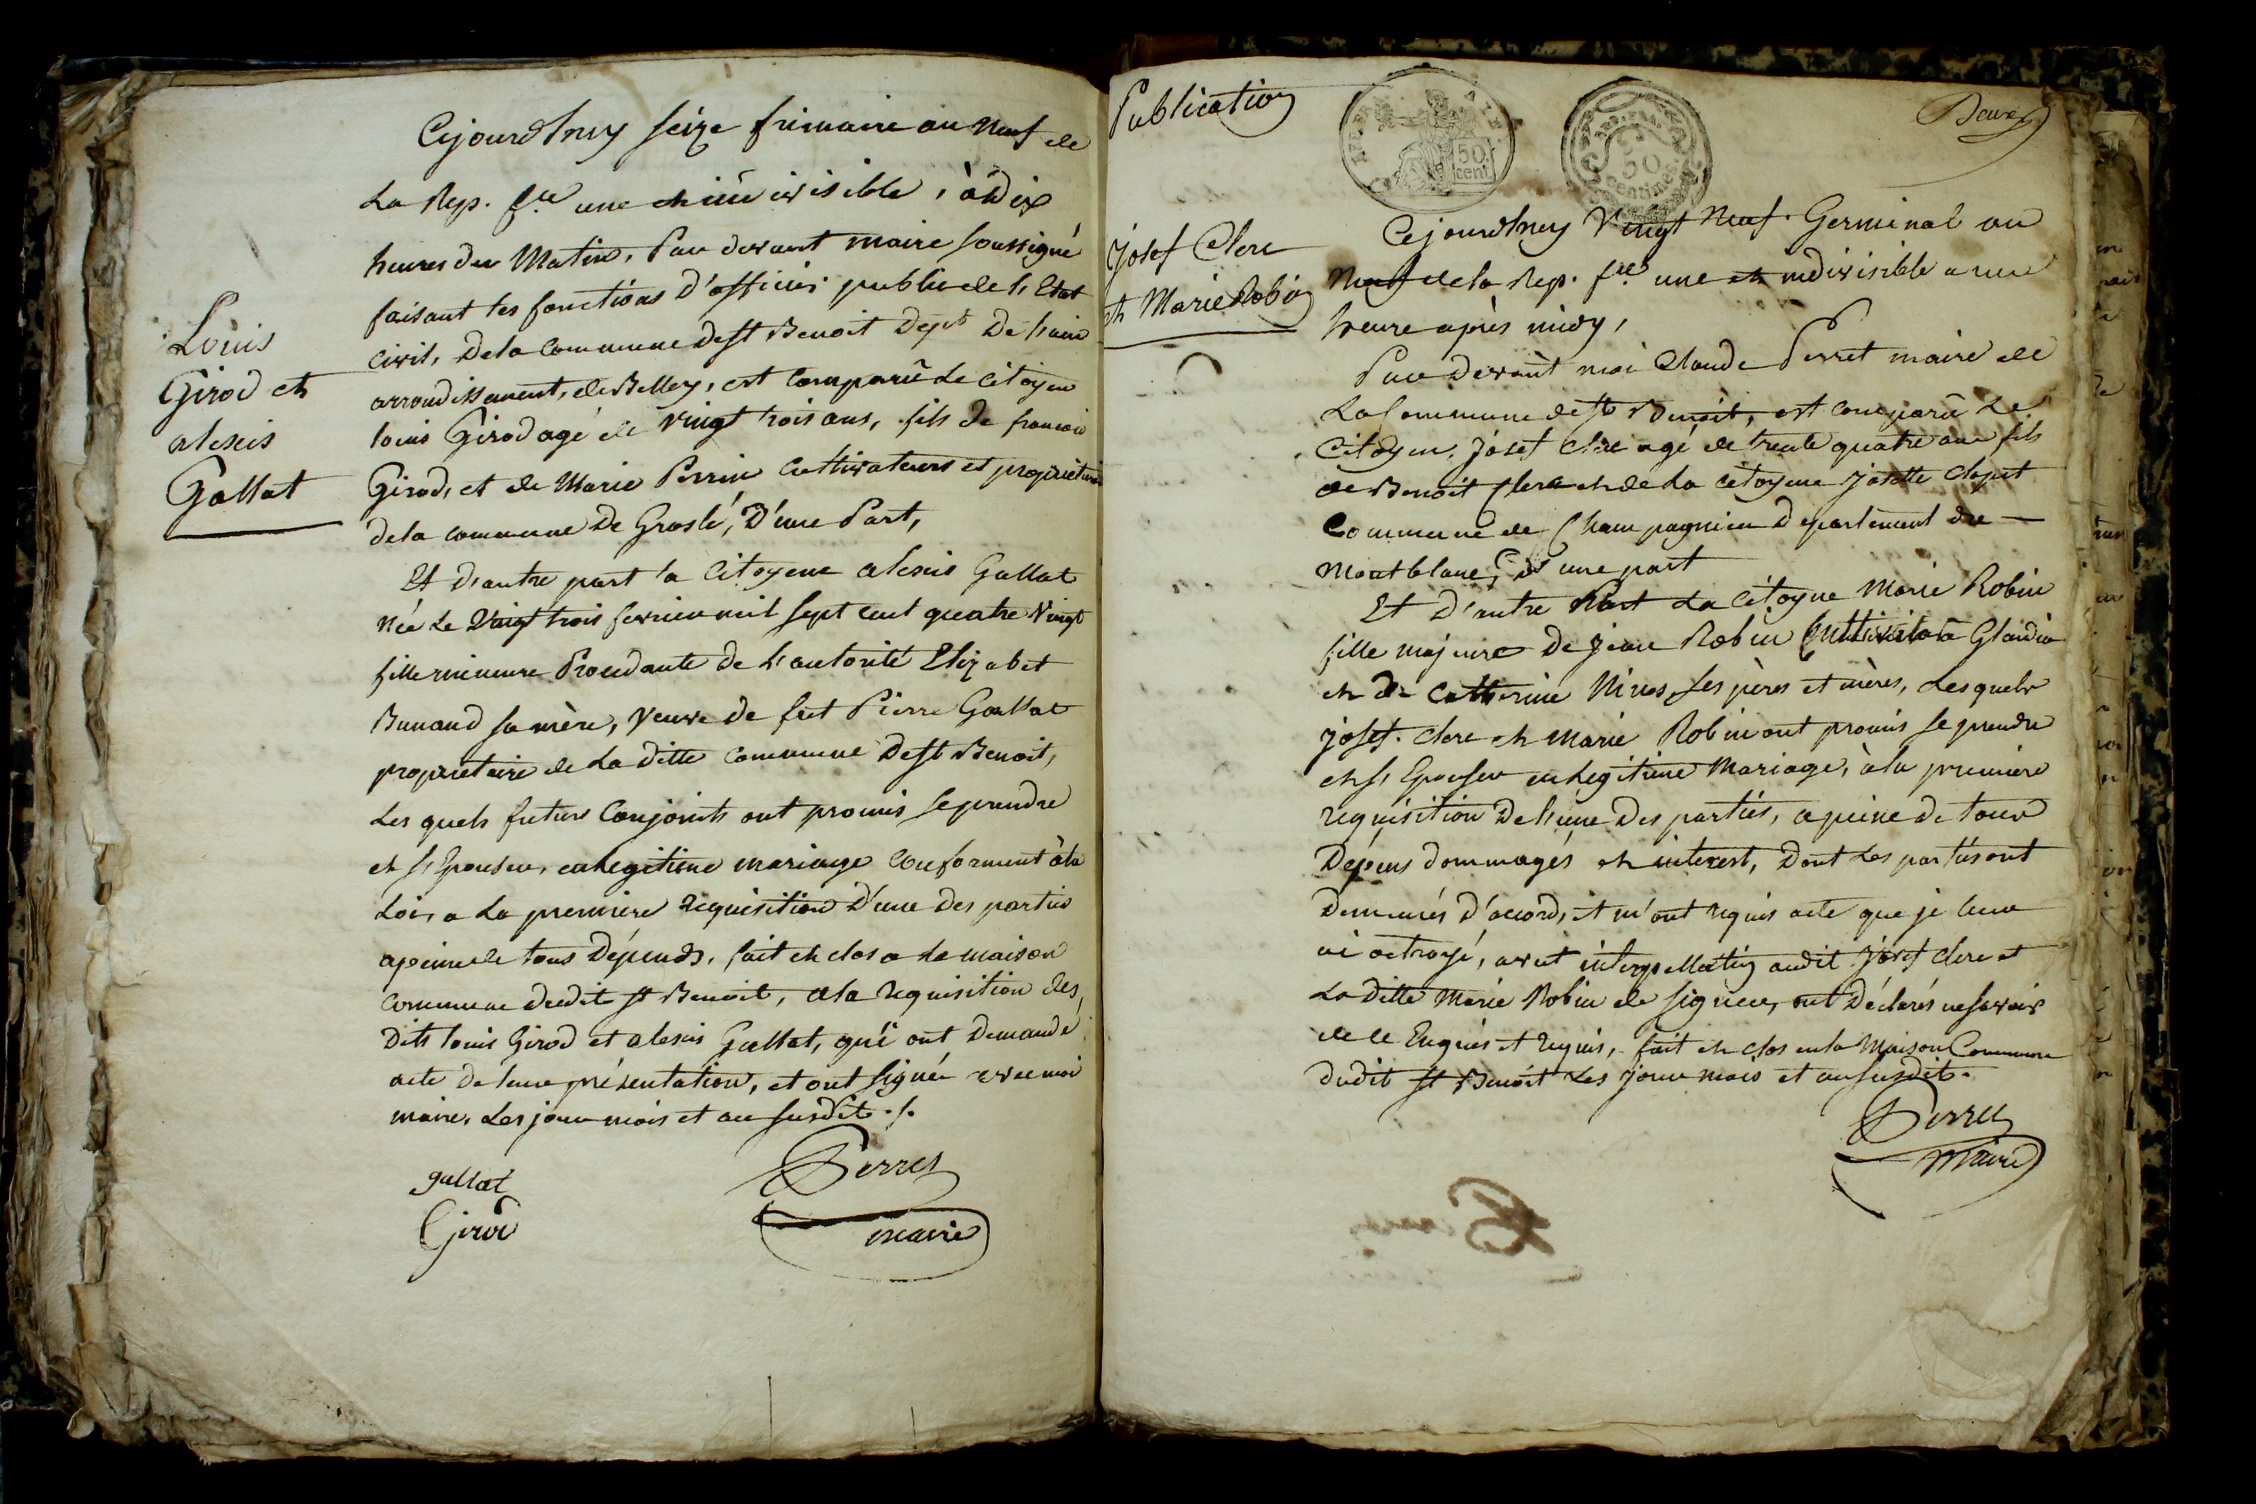 Cejourdhuy seize frimaire an neuf de
La Rep. fse une et indivisible, à dix
heures du Matin, Par devant maire soussigné
faisant les fonctions d'officier public de l'Etat
civil, Dela commune de st Benoit Dept De l'ain
arrondissement de Belley, est comparû Le citoyen
Louis Girod agé de vingt trois ans, fils de francois
Girod, et de Marie Perrin Cultivateurs et propriétaires
dela commune De Groslé, D'une Part,
Et d'autre part la Citoyene alexis Gallat
Née Le vingt trois fevrier mil sept cent quatre vingt
fille mineure Procedante de l'autorité Elizabet
Bunand sa mère, veuve de feu Pierre Gallat
proprietaire de La ditte Commune De st Benoit,
Les quels futurs Conjoints ont promis se prendre
et s'Epouser, en legitime mariage Conforment à la
Loi, a La premiere requisition D'une des parties
apeine de tous Dépends, fait et clos a La maison
commune dudit st Benoit, a la requisition des
dits Louis Girod et alexis Gallat, qui ont Demandé
acte De leur présentation, et ont signér avec moi
maire, Les jour mois et an susdit ./.
gallat
Girod
Perret
maire
Louis
Girod et
alexis
Gallat
Publication
50
cent
50
centimes
Josef Clerc
et Marie Robin
Cejourdhuy Vingt Neuf Germinal an
Neuf de la Rep. fse une et indivisible a une
heure après midy,
Par Devant moi Claude Perret maire de
La Commune de st Benoit, est comparû Le
Citoyen Josef Clerc agé de trente quatre ans fils
de Benoit Clerc et de La citoyene Josette
Commune de Champagnieu Departement du
Montblanc, d'une part
Et D'autre Part La Citoyne Marie Robin
fille majeure De jean Robin Glandieu
et De Catherine ses pères et mères, Lesquels
josef Clerc et Marie Robin ont promis se prendre
et s'Epouser en Legitime Mariage, à la premiere
requisition De l'une Des parties, a peine de tous
Dépens dommages et interest, Dont Les parties ont
Demeurés D'accord, et m'ont requis acte que je leur
ai octroyé, avet interpellation audit Josef Clerc et
La ditte Marie Robin de signer, ont Déclarés ne savoir
de ce Enquis et requis, fait et clos en la Maison Commune
dudit st Benoit Les jour mois et an susdit.
Perret
Maire